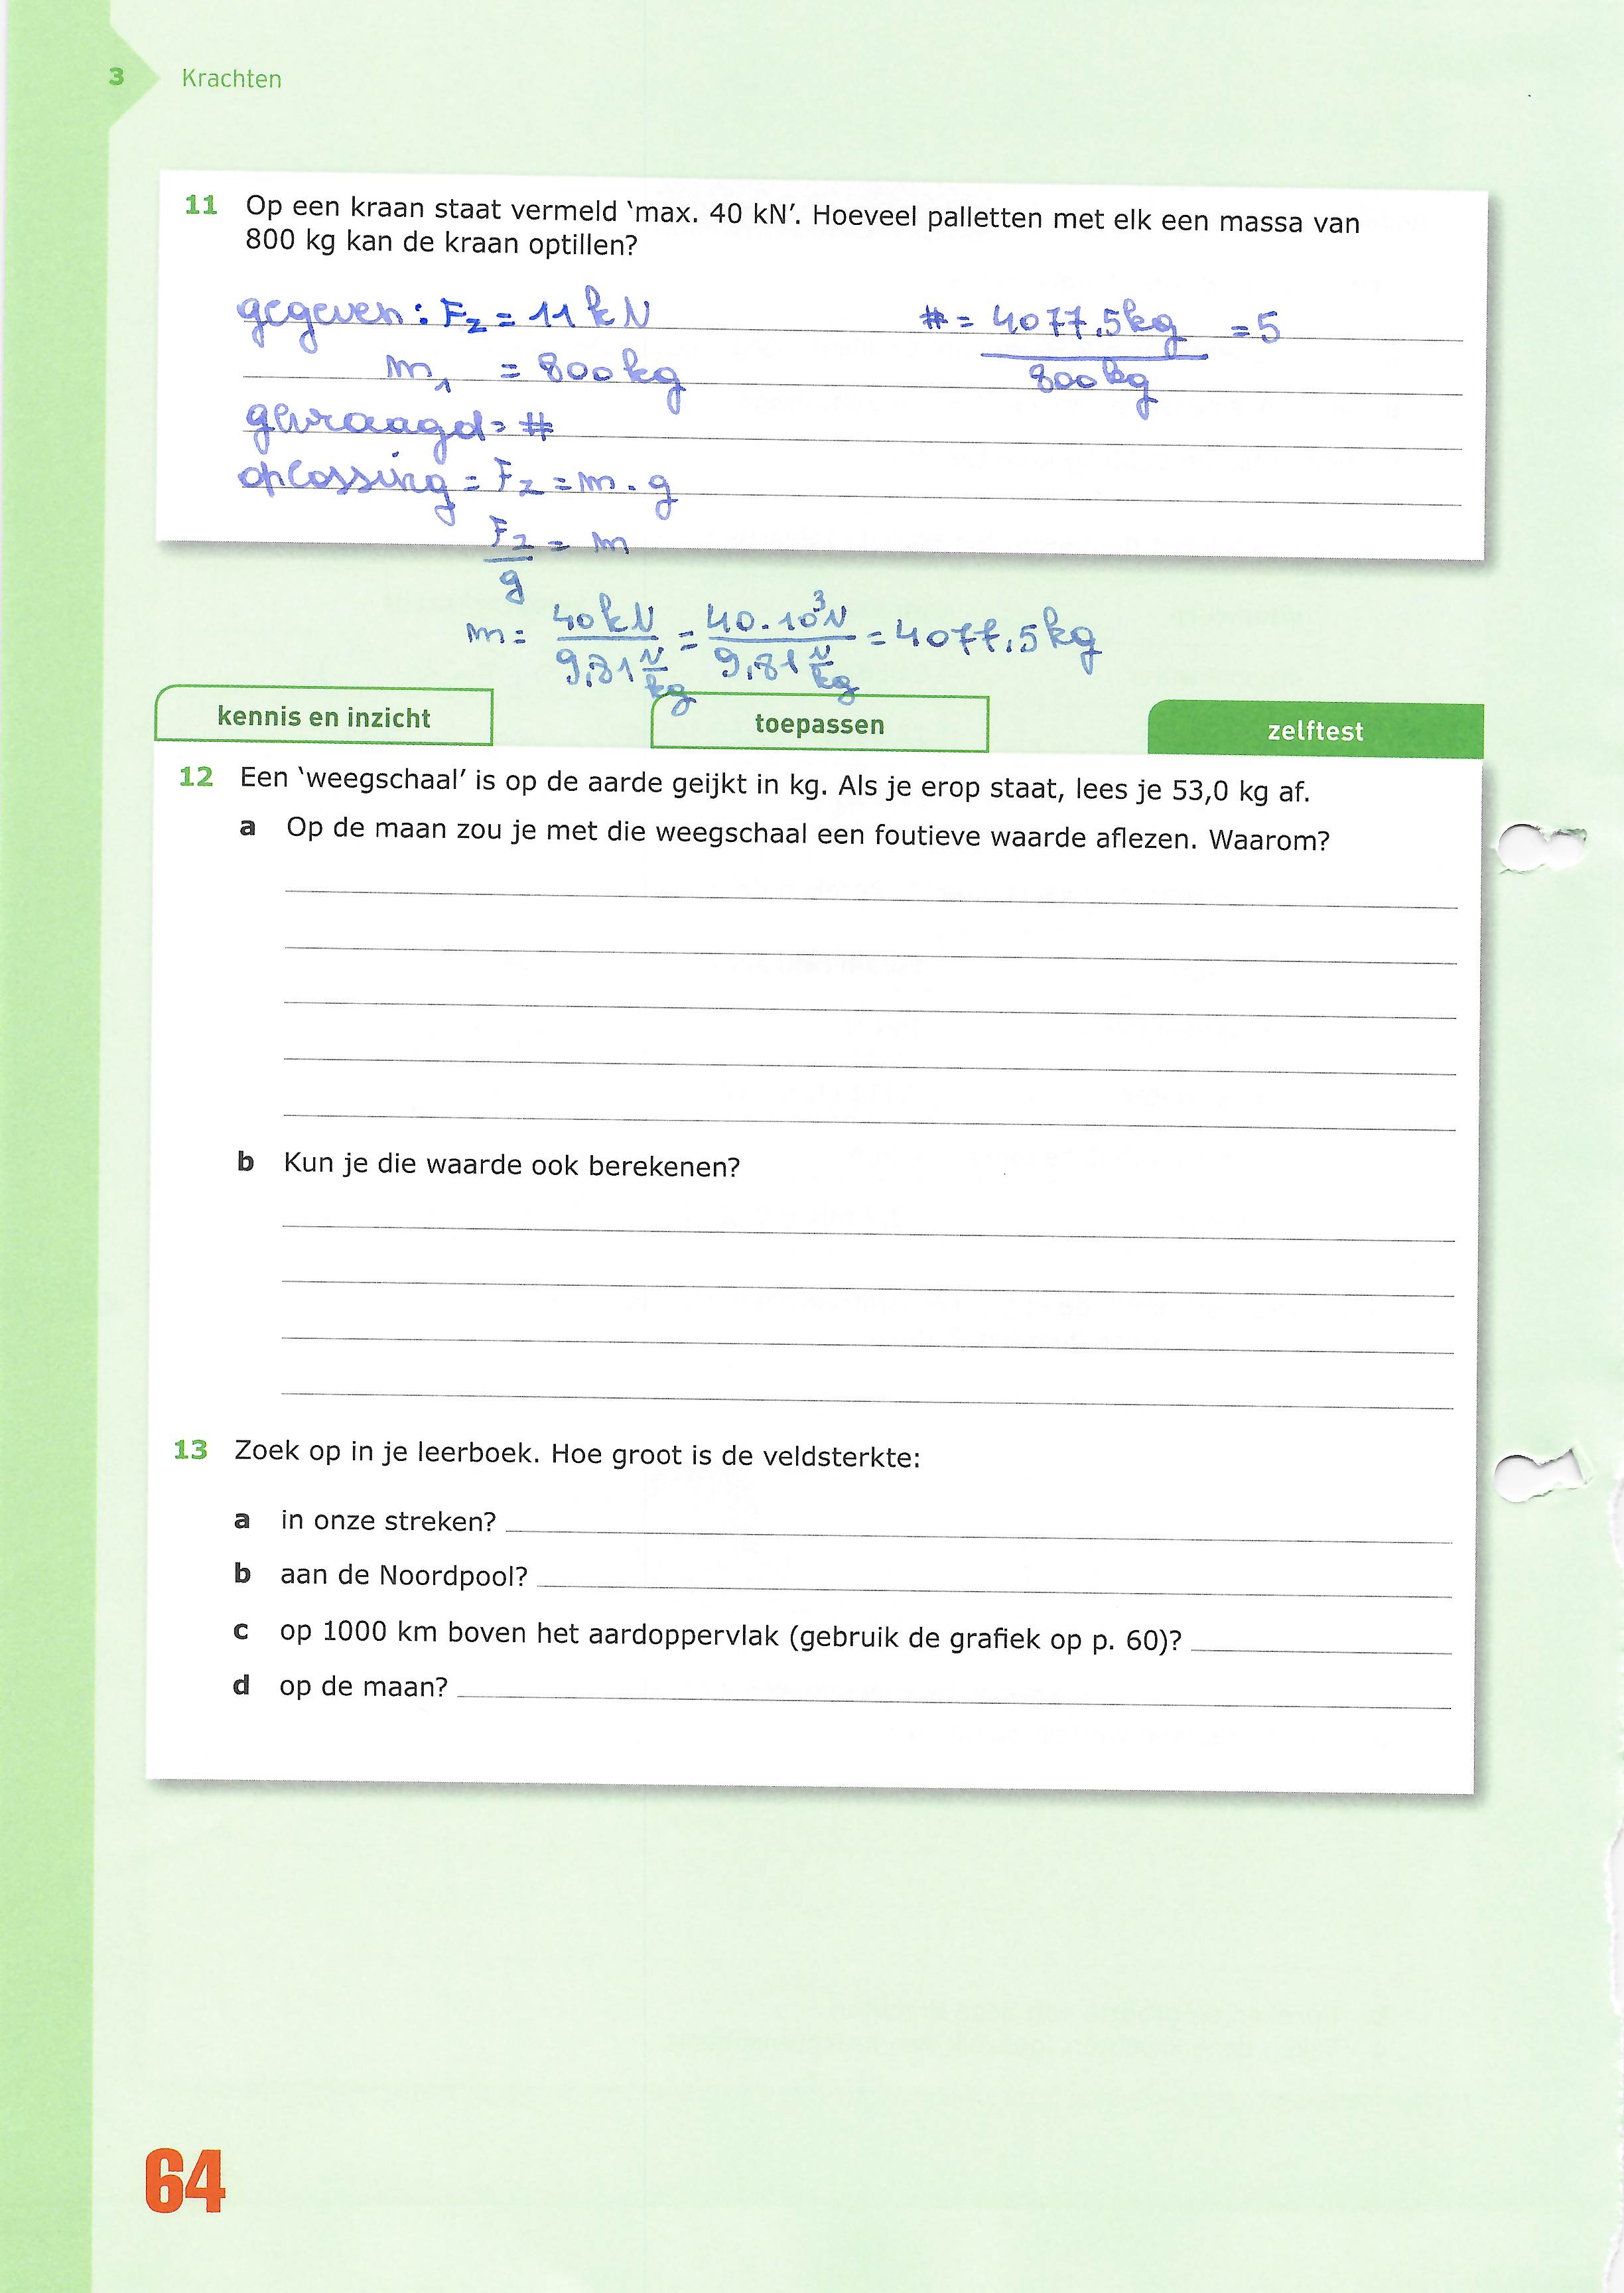 3 Krachten
11 Op een kraan staat vermeld ‘max. 40 kN’. Hoeveel palletten met elk een massa van
800 kg kan de kraan optillen?
gegeven : Fz = 11 kN
m1 = 800 kg
gevraagd = #
oplossing = Fz = m . g
Fz/g = m
m = 40 kN / 9,81 N/kg = 40 . 10³ N / 9,81 N/kg = 4077,5 kg
# = 4077,5 kg / 800 kg = 5
kennis en inzicht
toepassen
zelftest
12 Een ‘weegschaal’ is op de aarde geijkt in kg. Als je erop staat, lees je 53,0 kg af.
a Op de maan zou je met die weegschaal een foutieve waarde aflezen. Waarom?
b Kun je die waarde ook berekenen?
13 Zoek op in je leerboek. Hoe groot is de veldsterkte:
a in onze streken?
b aan de Noordpool?
c op 1000 km boven het aardoppervlak (gebruik de grafiek op p. 60)?
d op de maan?
64